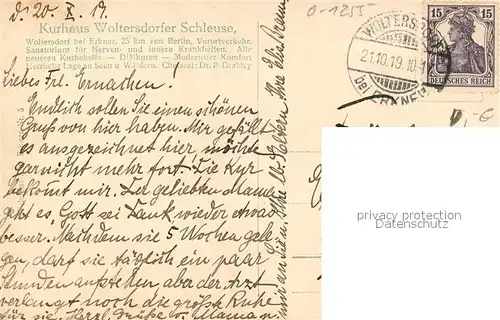 d. 20. X. 19.
0-1215
Kurhaus Woltersdorfer Schleuse,
Woltersdorf bei Erkner, 25 km von Berlin, Vorortverkehr.
Sanatorium für Nerven- und innere Krankheiten. Alle
neueren Kurbehelfe. — Diätkuren — Modernster Komfort
Herrliche Lage zu Seen u Wäldern. Chefarzt: Dr. P. Grabley
WOLTERSD
21.10.19.10-1
bei ERKNER
15 15
DEUTSCHES REICH
Liebes Frl. Ernachen!
Endlich sollen Sie einen schönen
Gruß von hier haben. Mir gefällt
es ausgezeichnet hier, möchte
garnicht mehr fort! Die Kur
bekommt mir. Der geliebten Mama
geht es, Gott sei Dank, wieder etwas
besser. Nachdem sie 5 Wochen gele-
gen, darf sie täglich ein paar
Stunden aufstehen, aba der Arzt
verlangt noch die größte Ruhe
für sie. Herzl. Grüße v. Mama u.
privacy protection
www.oldthing.de